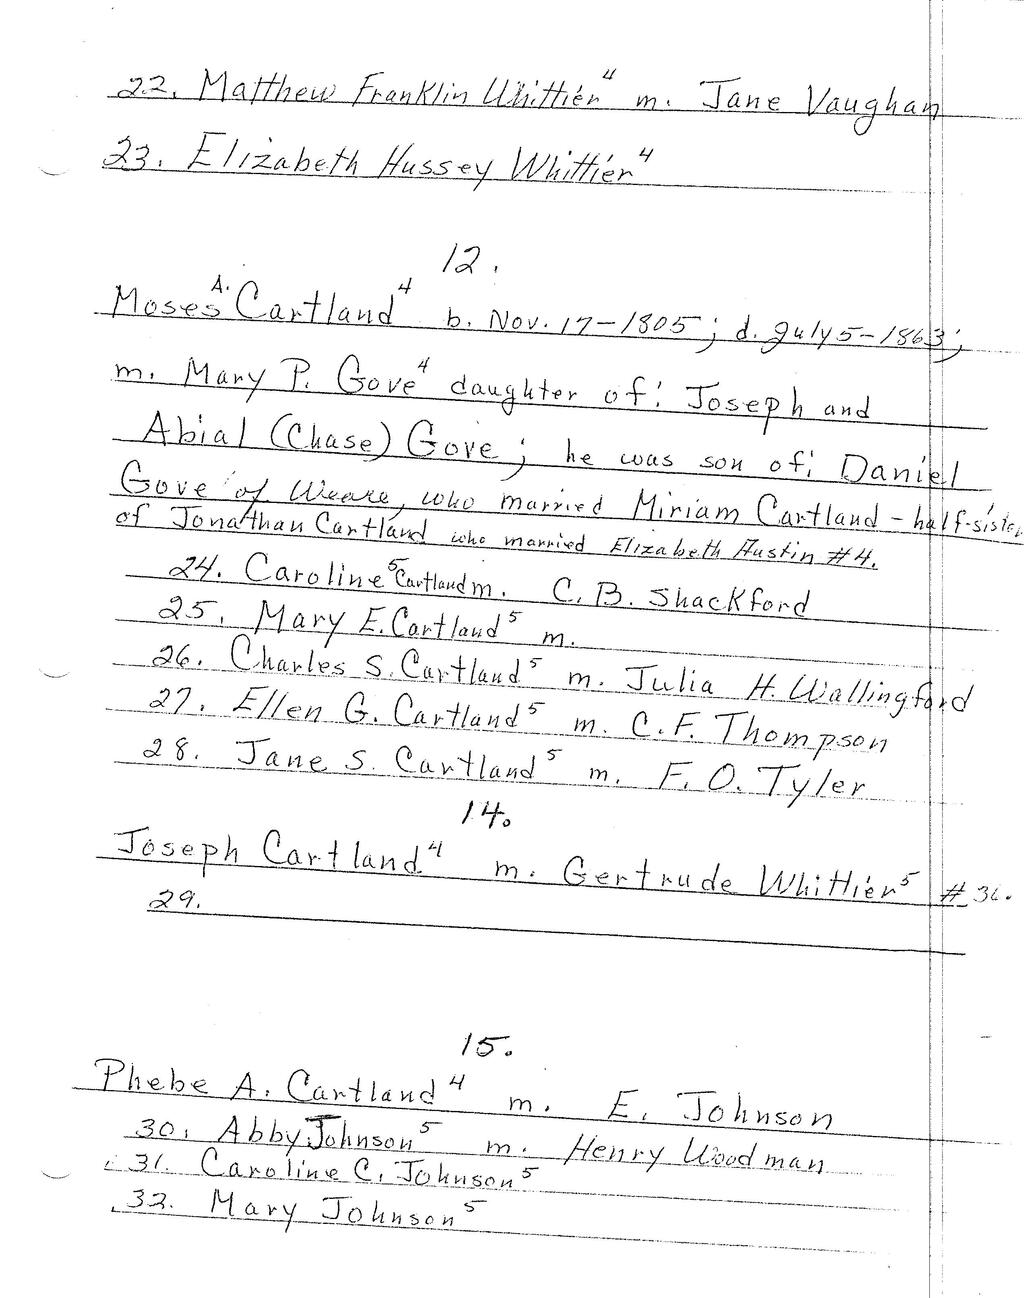 22. Matthew Franklin Whittier⁴ m. Jane Vaughan
23. Elizabeth Hussey Whittier⁴
12.
Moses A. Cartland⁴ b. Nov. 17-1805; d. July 5-1863;
m. Mary P. Gove⁴ daughter of: Joseph and
Abial (Chase) Gove; he was son of: Daniel
Gove of Weare, who married Miriam Cartland - half-sister
of Jonathan Cartland who married Elizabeth Austin #4.
24. Caroline⁵ Cartland m. C. B. Shackford
25. Mary E. Cartland⁵ m.
26. Charles S. Cartland⁵ m. Julia H. Wallingford
27. Ellen G. Cartland⁵ m. C. F. Thompson
28. Jane S. Cartland⁵ m. F. O. Tyler
14.
Joseph Cartland⁴ m. Gertrude Whittier⁵ #
29.
15.
Phebe A. Cartland⁴ m. E. Johnson
30. Abby Johnson⁵ m. Henry Woodman
31. Caroline C. Johnson⁵
32. Mary Johnson⁵